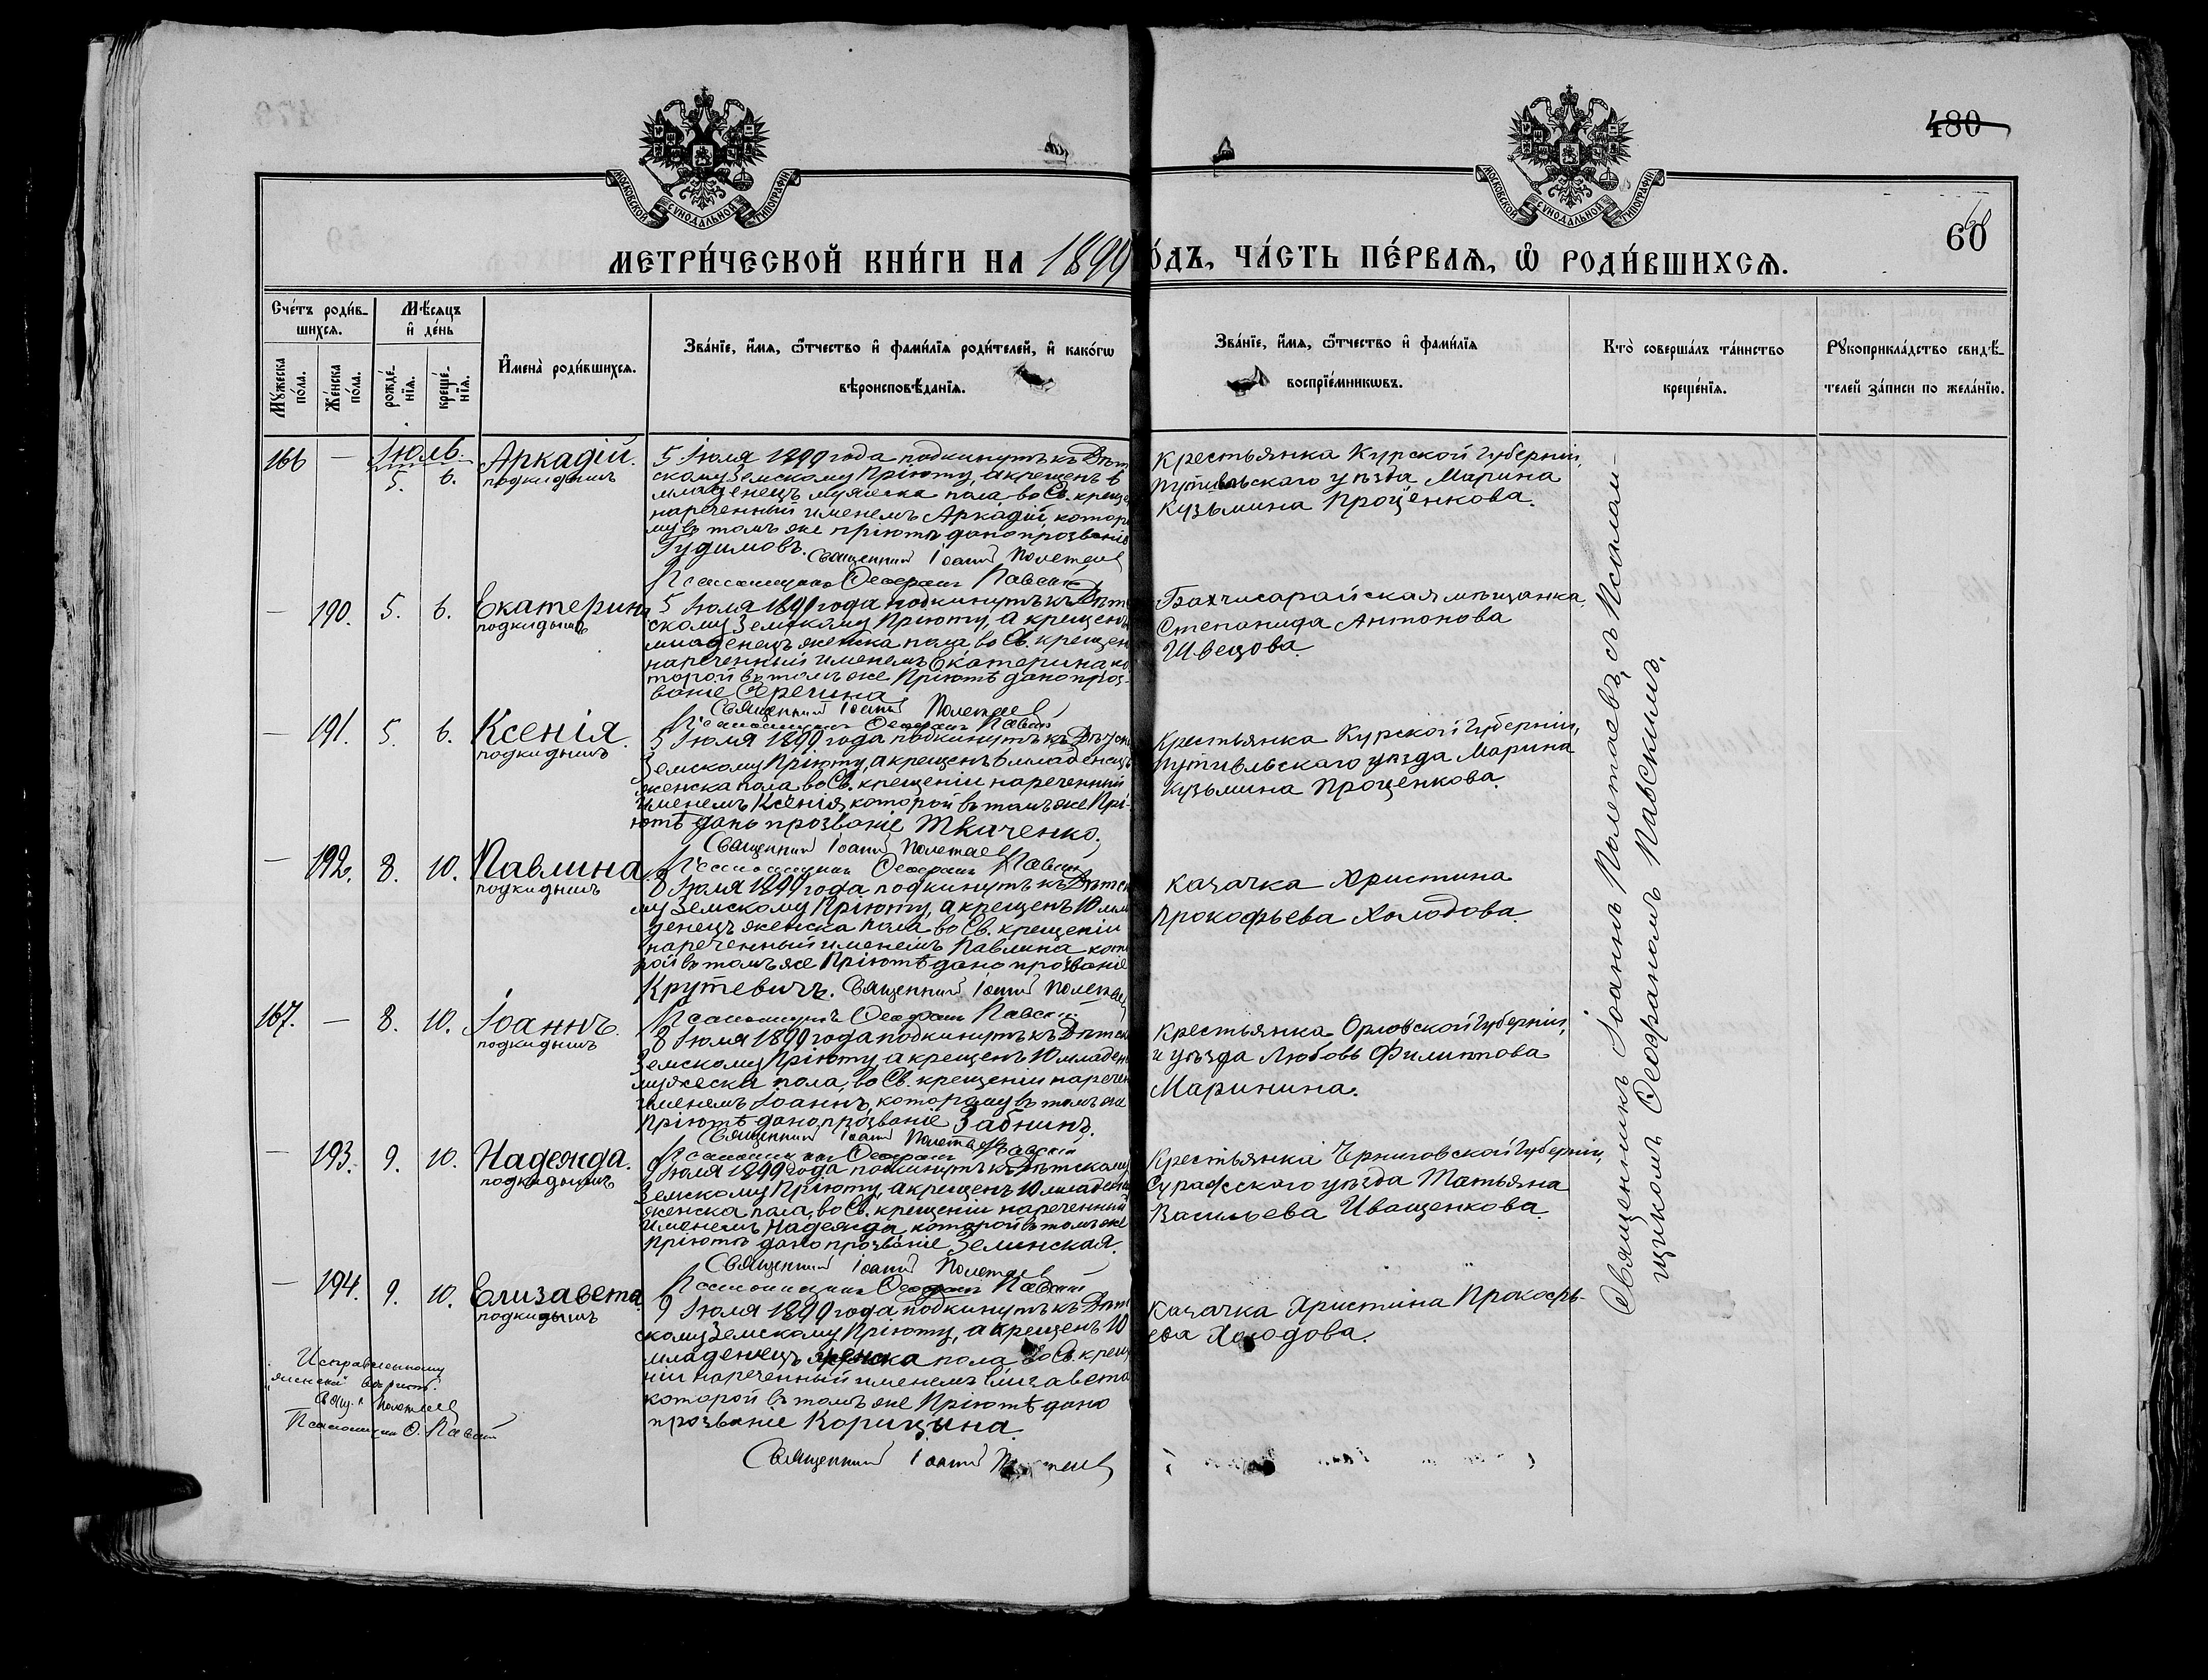 480
60
МОСКОВСКОЙ СѴНОДАЛЬНОЙ ТИПОГРАФІИ
МОСКОВСКОЙ СѴНОДАЛЬНОЙ ТИПОГРАФІИ
МЕТРИ́ЧЕСКОЙ КНИ́ГИ НА 1899 О́ДЪ, ЧА́СТЬ ПЕ́РВАѦ, Ѡ҆ РОДИ́ВШИХСѦ.
Сче́тъ роди́в-
шихсѧ.
Мꙋ́жеска по́ла.
Же́нска по́ла.
Мѣ́сѧцъ
и҆ де́нь
рожде́-
нїѧ.
креще́-
нїѧ.
И҆мена̀ роди́вшихсѧ.
Зва́нїе, и҆́мѧ, ѻ҆́тчество и҆ фами́лїѧ роди́телей, и҆ како́гѡ
вѣроисповѣ́данїѧ.
Зва́нїе, и҆́мѧ, ѻ҆́тчество и҆ фами́лїѧ
воспрїе́мникѡвъ.
Кто̀ соверша́лъ та́инство
креще́нїѧ.
Рꙋкоприкла́дство свидѣ́-
телей за́писи по жела́нїю.
166 — Іюль. 5. 6. Аркадій.
подкидышъ
5 Іюля 1899 года подкинутъ къ Дѣт
скому Земскому Пріюту, а крещенъ 6
младенецъ мужеска пола, во Св. креще
нареченный именемъ Аркадій, котор
му въ томъ же пріютѣ дано прозваніе
Гудимовъ. Священникъ Іоаннъ Полетаев
Псаломщикъ Ѳеофанъ Павскій
Крестьянка Курской Губерніи,
Путивльскаго уѣзда Марина
Кузьмина Проценкова.
— 190. 5. 6. Екатерина
подкидышъ
5 Іюля 1899 года подкинутъ къ Дѣт
скому Земскому Пріюту, а крещенъ
младенецъ женска пола, во Св. крещен
нареченный именемъ Екатерина, ко
торой въ томъ же Пріютѣ дано проз-
ваніе
Священникъ Іоаннъ Полетаев
Псаломщикъ Ѳеофанъ Павскій
Бахчисарайская мѣщанка
Степанида Антонова
Швецова.
— 191. 5. 6. Ксенія.
подкидышъ
5 Іюля 1899 года подкинутъ къ Дѣтск
Земскому Пріюту, а крещенъ 6 младенецъ
женска пола, во Св. крещеніи нареченный
именемъ Ксенія, которой въ томъ же Прі-
ютѣ дано прозваніе Ткаченко.
Священникъ Іоаннъ Полетаев
Псаломщикъ Ѳеофанъ Павскій
Крестьянка Курской Губерніи,
Путивльскаго уѣзда Марина
Кузьмина Проценкова.
— 192. 8. 10. Павлина
подкидышъ
8 Іюля 1899 года подкинутъ къ Дѣтск
му Земскому Пріюту, а крещенъ 10 мла
денецъ женска пола, во Св. крещеніи
нареченный именемъ Павлина, кото
рой въ томъ же Пріютѣ дано прозваніе
Крутевичъ. Священникъ Іоаннъ Полетаев
Псаломщикъ Ѳеофанъ Павскій
Казачка Христина
Прокофьева Холодова.
167. — 8. 10. Іоаннъ.
подкидышъ
8 Іюля 1899 года подкинутъ къ Дѣтск
Земскому Пріюту, а крещенъ 10 младен
мужеска пола, во Св. крещеніи наречен
именемъ Іоаннъ, которому въ томъ же
Пріютѣ дано прозваніе Забнинъ.
Священникъ Іоаннъ Полетаев
Псаломщикъ Ѳеофанъ Павскій
Крестьянка Орловской Губерніи,
и уѣзда Любовь Филиппова
Маринина.
— 193. 9. 10. Надежда.
подкидышъ
9 Іюля 1899 года подкинутъ къ Дѣтскому
Земскому Пріюту, а крещенъ 10 младенец
женска пола, во Св. крещеніи нареченный
именемъ Надежда, которой въ томъ же
Пріютѣ дано прозваніе Зелинская.
Священникъ Іоаннъ Полетаев
Псаломщикъ Ѳеофанъ Павскій
Крестьянка Черниговской Губерніи,
Суражскаго уѣзда Татьяна
Васильева Иващенкова.
— 194. 9. 10. Елизавета
подкидышъ
9 Іюля 1899 года подкинутъ къ Дѣт
скому Земскому Пріюту, а крещенъ 10
младенецъ женска пола, во Св. креще
ніи нареченный именемъ Елизавета
которой въ томъ же Пріютѣ дано
прозваніе Корицына.
Священникъ Іоаннъ Полетаев
Казачка Христина Прокофь-
ева Холодова.
Исправленному
„женска“ вѣрить.
Свящ. І. Полетаев
Псаломщикъ Ѳ. Павскій
Священникъ Іоаннъ Полетаевъ съ Псалом-
щикомъ Ѳеофаномъ Павскимъ.